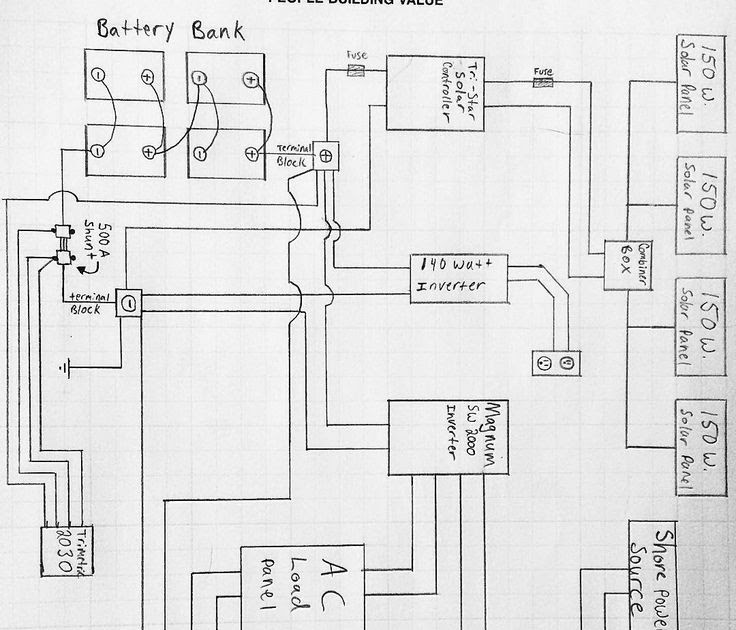 PEOPLE BUILDING VALUE
Battery Bank
Fuse
Tri-Star
Solar
Controller
Fuse
150 W.
Solar Panel
- +
- +
- +
- +
Terminal
Block
+
150 W.
Solar Panel
500 A
Shunt
Combiner
Box
140 Watt
Inverter
terminal
Block
-
150 W.
Solar Panel
Magnum
SW 2000
Inverter
150 W.
Solar Panel
Trimetric
2030
AC
Load
Panel
Shore Power
Source